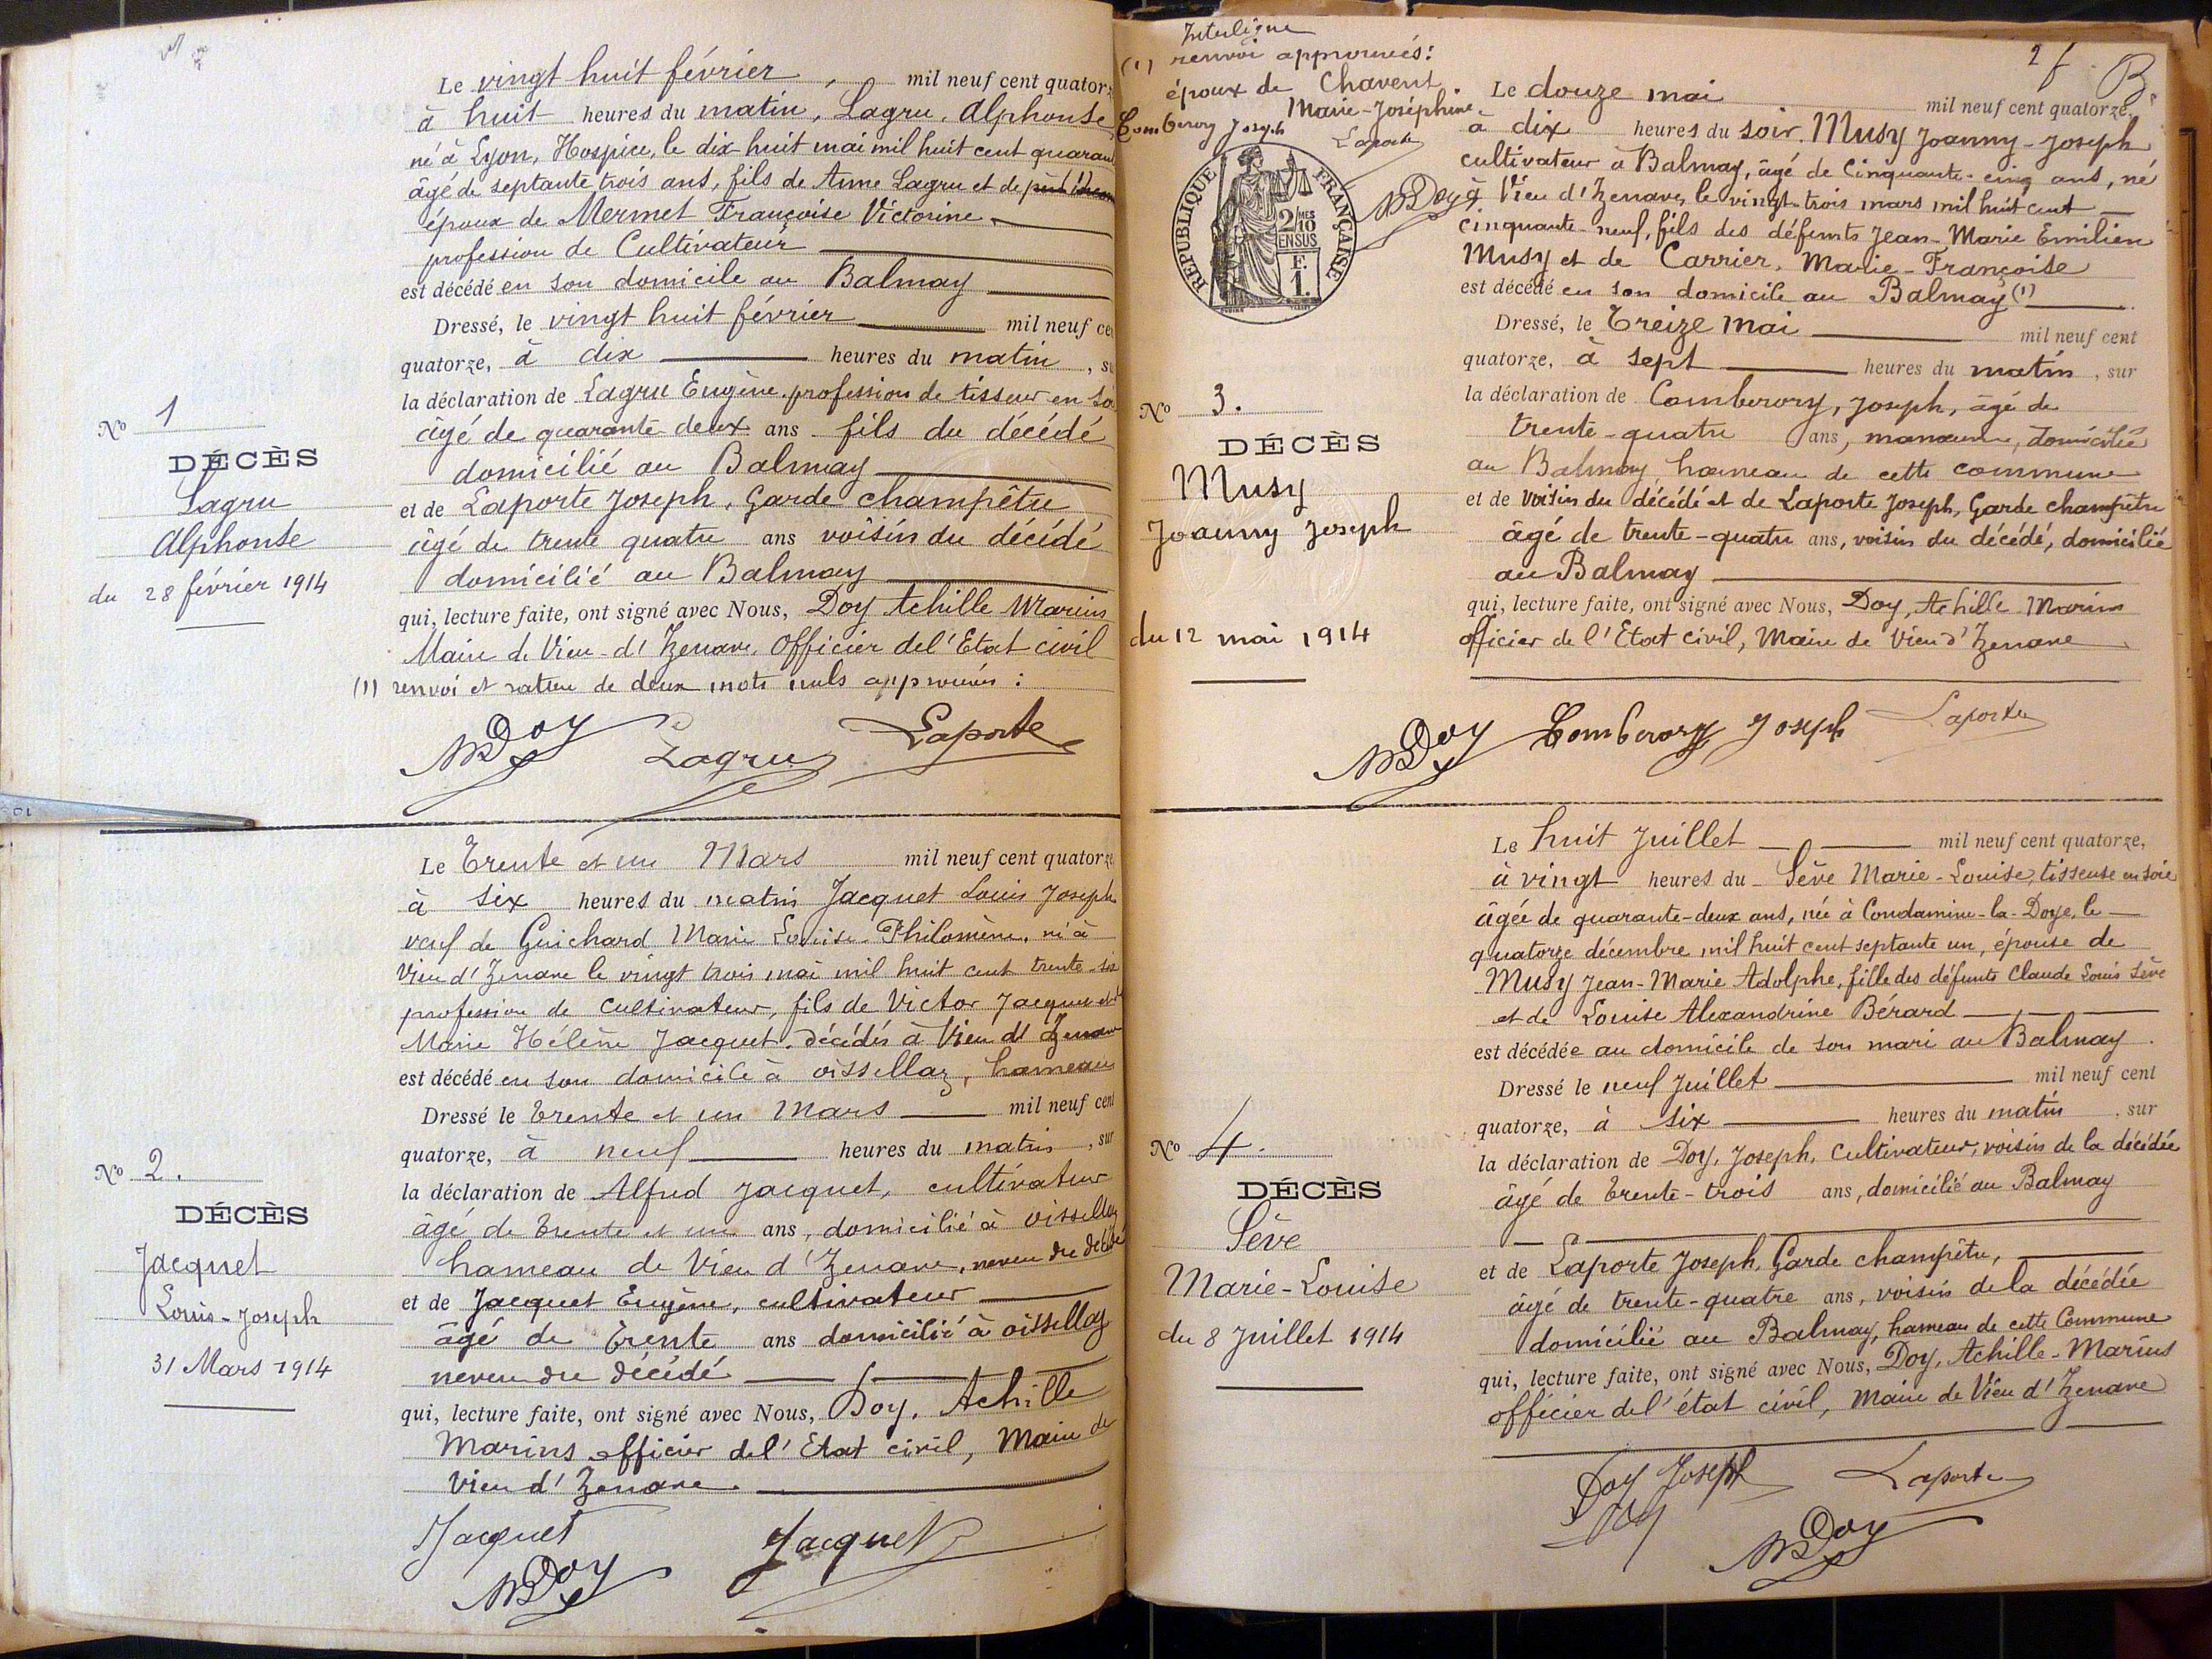 Le vingt huit février, mil neuf cent quatorze
à huit heures du matin, Lagru, Alphonse
né à Lyon, Hospice, le dix huit mai mil huit cent quarante
âgé de septante trois ans, fils de Anne Lagru et de
époux de Mermet Françoise Victorine
profession de Cultivateur
est décédé en son domicile au Balmay
Dressé, le vingt huit février mil neuf cent
quatorze, à dix heures du matin, sur
la déclaration de Lagru Eugène profession de tisseur en soie
âgé de quarante deux ans fils du décédé
domicilié au Balmay
et de Laporte Joseph, Garde champêtre
âgé de trente quatre ans voisin du décédé
domicilié au Balmay
qui, lecture faite, ont signé avec Nous, Doy Achille Marius
Maire de Vieu-d'Izenave, Officier de l'Etat civil
(1) renvoi et rature de deux mots nuls approuvés :
MDoy Lagru Laporte
No 1
DÉCÈS
Lagru
Alphonse
du 28 février 1914
Le Trente et un Mars mil neuf cent quatorze
à six heures du matin Jacquet Louis Joseph
veuf de Guichard Marie Louise Philomène, né à
Vieu d'Izenave le vingt trois mai mil huit cent trente-six
profession de cultivateur, fils de Victor Jacquet et
Marie Hélène Jacquet. décédés à Vieu d'Izenave
est décédé en son domicile à oissellaz, hameau
Dressé le trente et un Mars mil neuf cent
quatorze, à neuf heures du matin, sur
la déclaration de Alfred Jacquet, cultivateur
âgé de trente et un ans, domicilié à oissellaz
hameau de Vieu d'Izenave, neveu du décédé
et de Jacquet Eugène, cultivateur
âgé de trente ans domicilié à oissellaz
neveu du décédé
qui, lecture faite, ont signé avec Nous, Doy, Achille
Marius officier de l'Etat civil, Maire de
Vieu d'Izenave.
Jacquet Jacquet
MDoy
No 2.
DÉCÈS
Jacquet
Louis-Joseph
31 Mars 1914
Interligne
(1) renvoi approuvés:
époux de Chavent
Marie-Joséphine
Comberory Joseph Laporte
MDoy
RÉPUBLIQUE FRANÇAISE
2/10
MES
EN SUS
F.
1.
2 f
B
Le douze mai mil neuf cent quatorze,
à dix heures du soir. Musy Joanny-Joseph
cultivateur à Balmay, âgé de Cinquante-cinq ans, né
à Vieu d'Izenave, le vingt-trois mars mil huit cent
cinquante-neuf, fils des défunts Jean-Marie Emilien
Musy et de Carrier, Marie-Françoise
est décédé en son domicile au Balmay (1)
Dressé, le Treize Mai mil neuf cent
quatorze, à sept heures du matin, sur
la déclaration de Comberory, Joseph, âgé de
trente-quatre ans, domicilié
au Balmay hameau de cette commune
et de voisin du décédé et de Laporte Joseph, Garde champêtre
âgé de trente-quatre ans, voisin du décédé, domicilié
au Balmay
qui, lecture faite, ont signé avec Nous, Doy, Achille Marius
officier de l'Etat civil, Maire de Vieu d'Izenave
MDoy Comberory Joseph Laporte
No 3.
DÉCÈS
Musy
Joanny Joseph
du 12 mai 1914
Le huit Juillet mil neuf cent quatorze,
à vingt heures du Sève Marie-Louise, tisseuse en soie
âgée de quarante-deux ans, née à Condamine-la-Doye, le
quatorze décembre mil huit cent septante un, épouse de
Musy Jean-Marie Adolphe, fille des défunts Claude Louis Sève
et de Louise Alexandrine Bérard
est décédée au domicile de son mari au Balmay.
Dressé le neuf Juillet mil neuf cent
quatorze, à six heures du matin, sur
la déclaration de Doy, Joseph, cultivateur, voisin de la décédée
âgé de trente-trois ans, domicilié au Balmay
et de Laporte Joseph, Garde champêtre,
âgé de trente-quatre ans, voisin de la décédée
domicilié au Balmay, hameau de cette Commune
qui, lecture faite, ont signé avec Nous, Doy, Achille-Marius
officier de l'état civil, Maire de Vieu d'Izenave
Doy Joseph Laporte
Doy
MDoy
No 4.
DÉCÈS
Sève
Marie-Louise
du 8 Juillet 1914